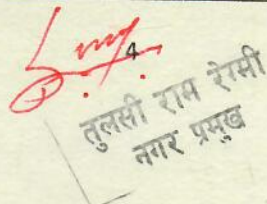 4
तुलसी राम रेग्मी
नगर प्रमुख